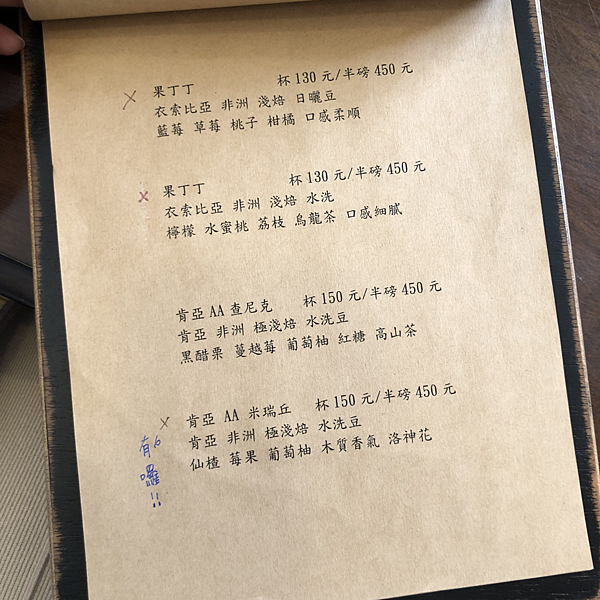 × 果丁丁 杯 130 元/半磅 450 元
衣索比亞 非洲 淺焙 日曬豆
藍莓 草莓 桃子 柑橘 口感柔順
× 果丁丁 杯 130 元/半磅 450 元
衣索比亞 非洲 淺焙 水洗
檸檬 水蜜桃 荔枝 烏龍茶 口感細膩
肯亞 AA 查尼克 杯 150 元/半磅 450 元
肯亞 非洲 極淺焙 水洗豆
黑醋栗 蔓越莓 葡萄柚 紅糖 高山茶
× 肯亞 AA 米瑞丘 杯 150 元/半磅 450 元
肯亞 非洲 極淺焙 水洗豆
仙楂 莓果 葡萄柚 木質香氣 洛神花
有
囉!!